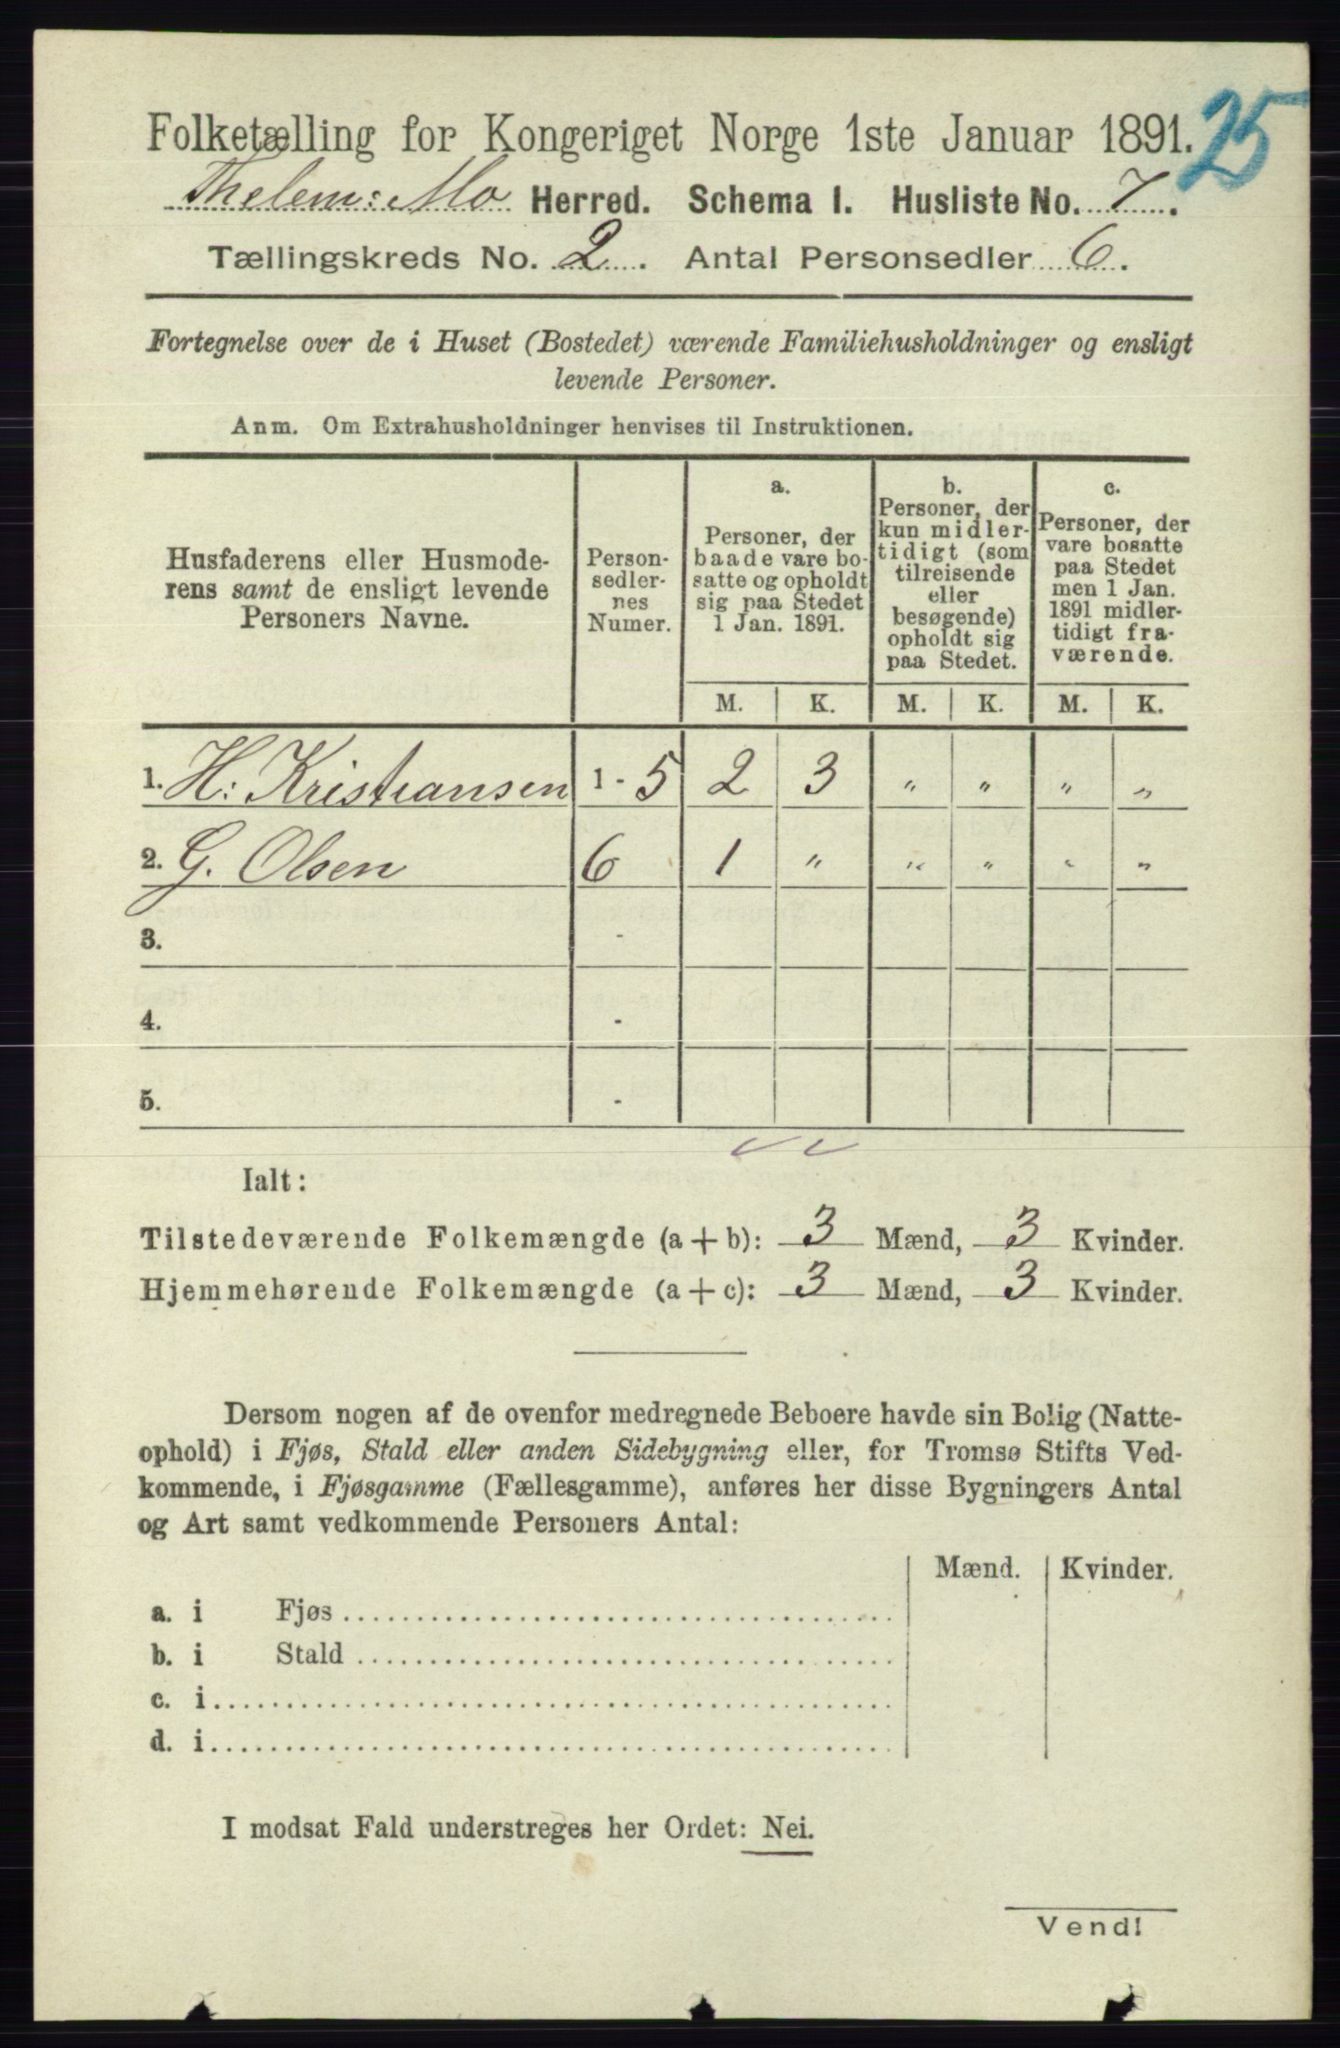 25
Folketælling for Kongeriget Norge 1ste Januar 1891.
Thelem: Mo Herred. Schema I. Husliste No. 7.
Tællingskreds No. 2. Antal Personsedler 6.
Fortegnelse over de i Huset (Bostedet) værende Familiehusholdninger og ensligt
levende Personer.
Anm. Om Extrahusholdninger henvises til Instruktionen.
Husfaderens eller Husmode-
rens samt de ensligt levende
Personers Navne.
Person-
sedler-
nes
Numer.
a.
Personer, der
baade vare bo-
satte og opholdt
sig paa Stedet
1 Jan. 1891.
b.
Personer, der
kun midler-
tidigt (som
tilreisende
eller
besøgende)
opholdt sig
paa Stedet.
c.
Personer, der
vare bosatte
paa Stedet
men 1 Jan.
1891 midler-
tidigt fra-
værende.
M. K. M. K. M. K.
1. H: Kristiansen 1 - 5 2 3 " " " "
2. G. Olsen 6 1 " " " " "
3. -
4. -
5. -
Ialt:
Tilstedeværende Folkemængde (a + b): 3 Mænd, 3 Kvinder.
Hjemmehørende Folkemængde (a + c): 3 Mænd, 3 Kvinder.
Dersom nogen af de ovenfor medregnede Beboere havde sin Bolig (Natte-
ophold) i Fjøs, Stald eller anden Sidebygning eller, for Tromsø Stifts Ved-
kommende, i Fjøsgamme (Fællesgamme), anføres her disse Bygningers Antal
og Art samt vedkommende Personers Antal:
Mænd. Kvinder.
a. i Fjøs
b. i Stald
c. i
d. i
I modsat Fald understreges her Ordet: Nei.
Vend!